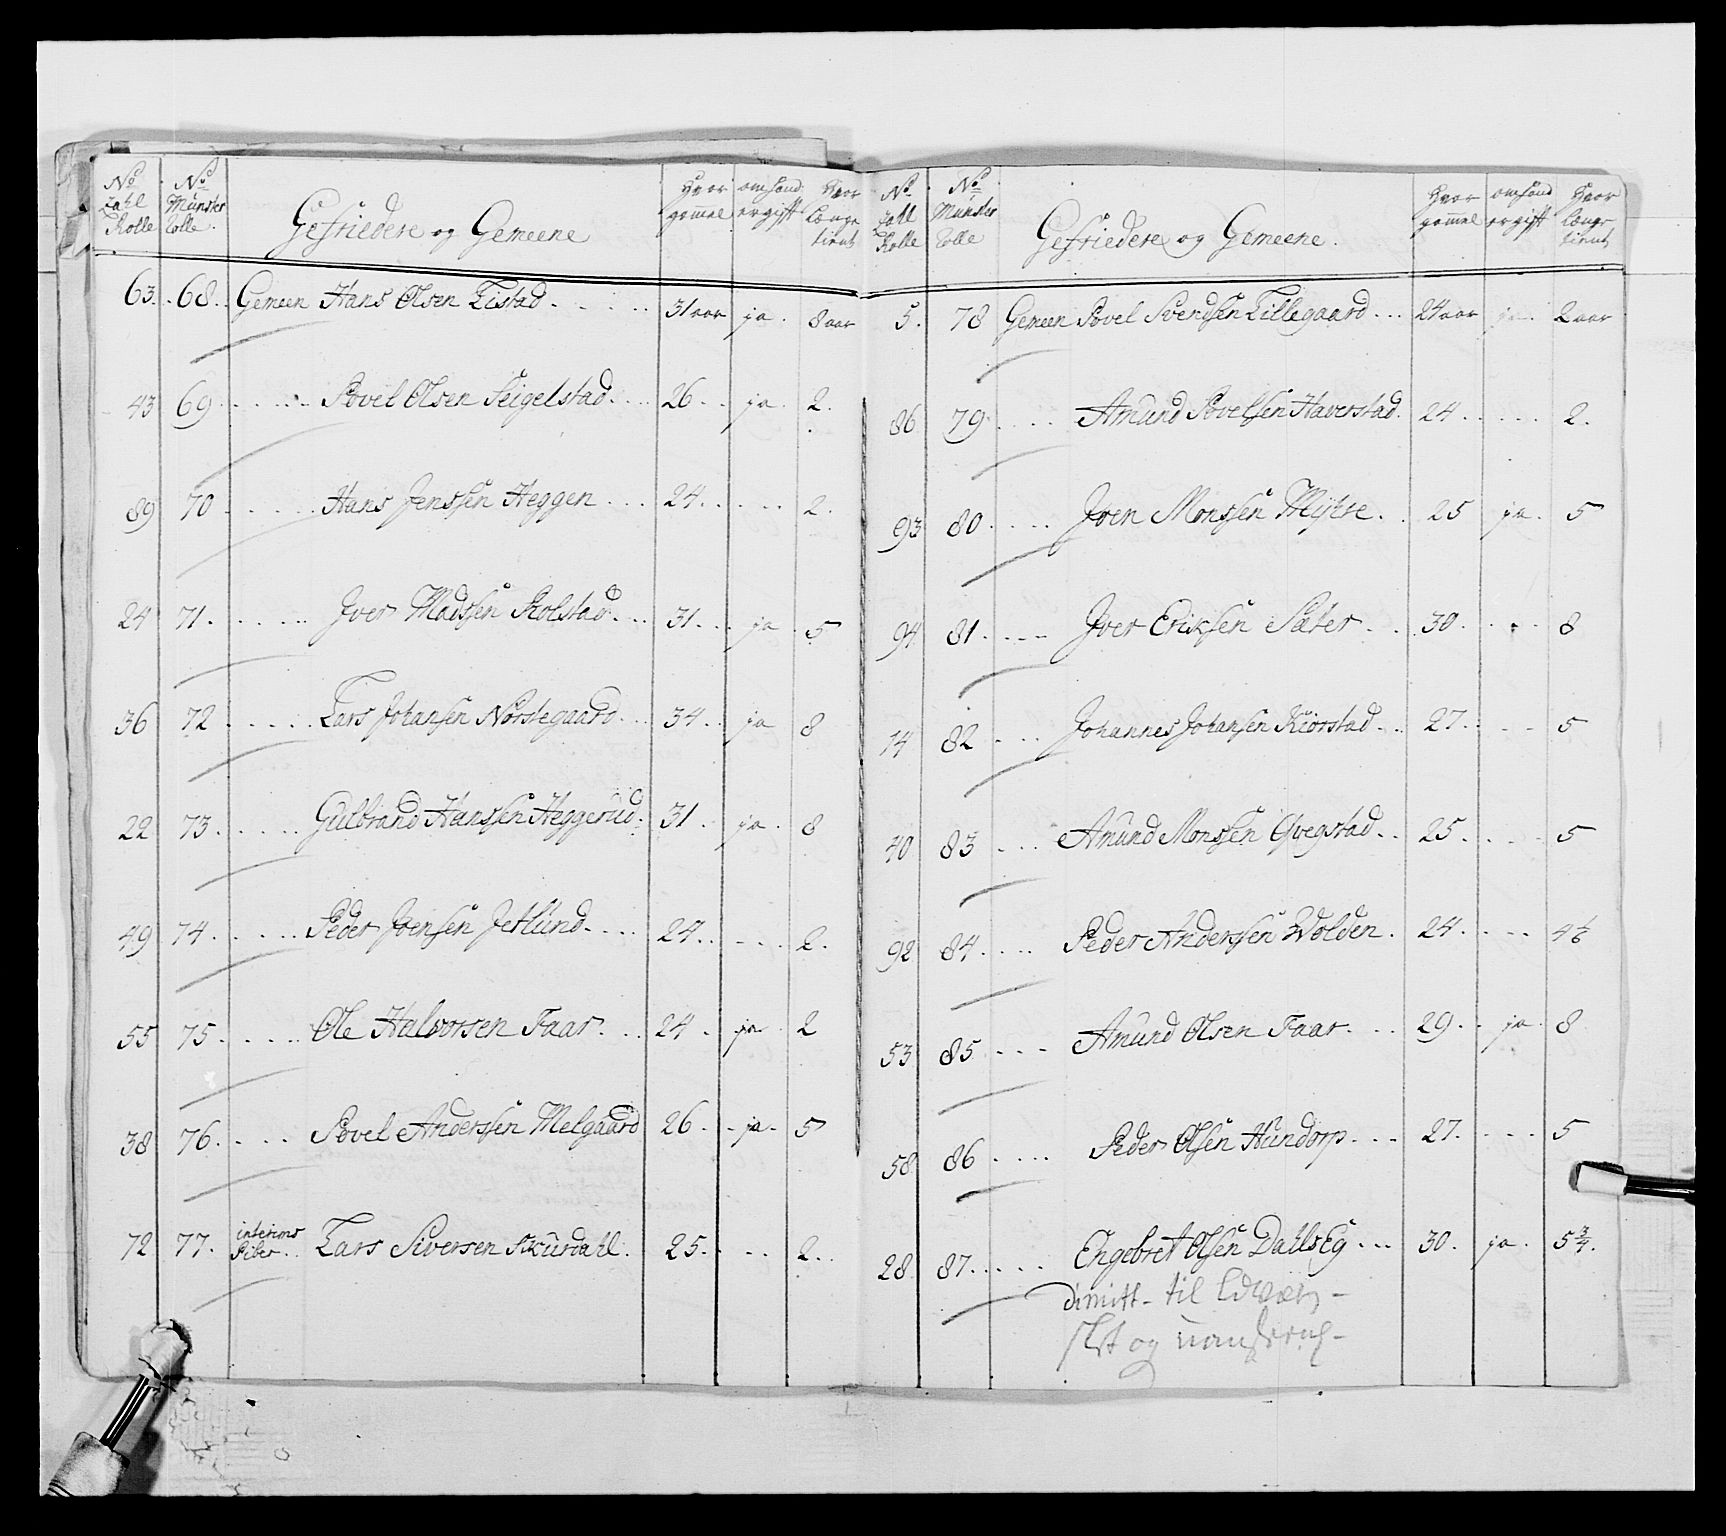 No Zahl Rolle | No Münster Rolle | Gefriedere og Gemeene | Hvor gommel | om hand er gift | Hvor længe tient
63. 68. Gemeen Hans Olsen Listad 31 aar ja. 8 aar
43 69 Povel Olsen Seigelstad 26 ja. 2.
89 70 Hans Jenssen Heggen 24. 2.
24 71. Iver Madssen Kolstad 31. ja. 5
36 72 Lars Johansen Norstegaard 34 ja 8
22 73. Gulbrand Hanssen Heggerud 31. ja. 8
49 74. Peder Joensen Jetlund 24. 2.
55 75. Ole Halvorsen Faar. 24. ja. 2
38 76. Povel Anderssen Melgaard 26. ja. 5
72 77. interims Piber Lars Siversen Skurdahl. 25. 2.
No Zahl Rolle | No Münster Rolle | Gefriedere og Gemeene. | Hvor gommel | om hand er gift | Hvor længe tient
5. 78 Gemeen Povel Svendsen Lillegaard 24 aar ja. 2 aar
86 79 Amund Povelsen Haverstad. 24. 2.
93 80. Joen Monssen Mytre. 25 ja. 5
94 81. Iver Eriksen Sæter. 30. 8
14 82 Johannes Johansen Kiorstad 27. 5
40 83 Amund Monssen Qvegstad. 25. 5
92 84. Peder Anderssen Wolden. 24. 4½
53 85 Amund Olsen Faar. 29. ja. 8
58 86 Peder Olsen Hundorp 27. 5
28 87. Engebret Olsen Dahls Eg 30. ja. 5¾.
dimitt- til
og